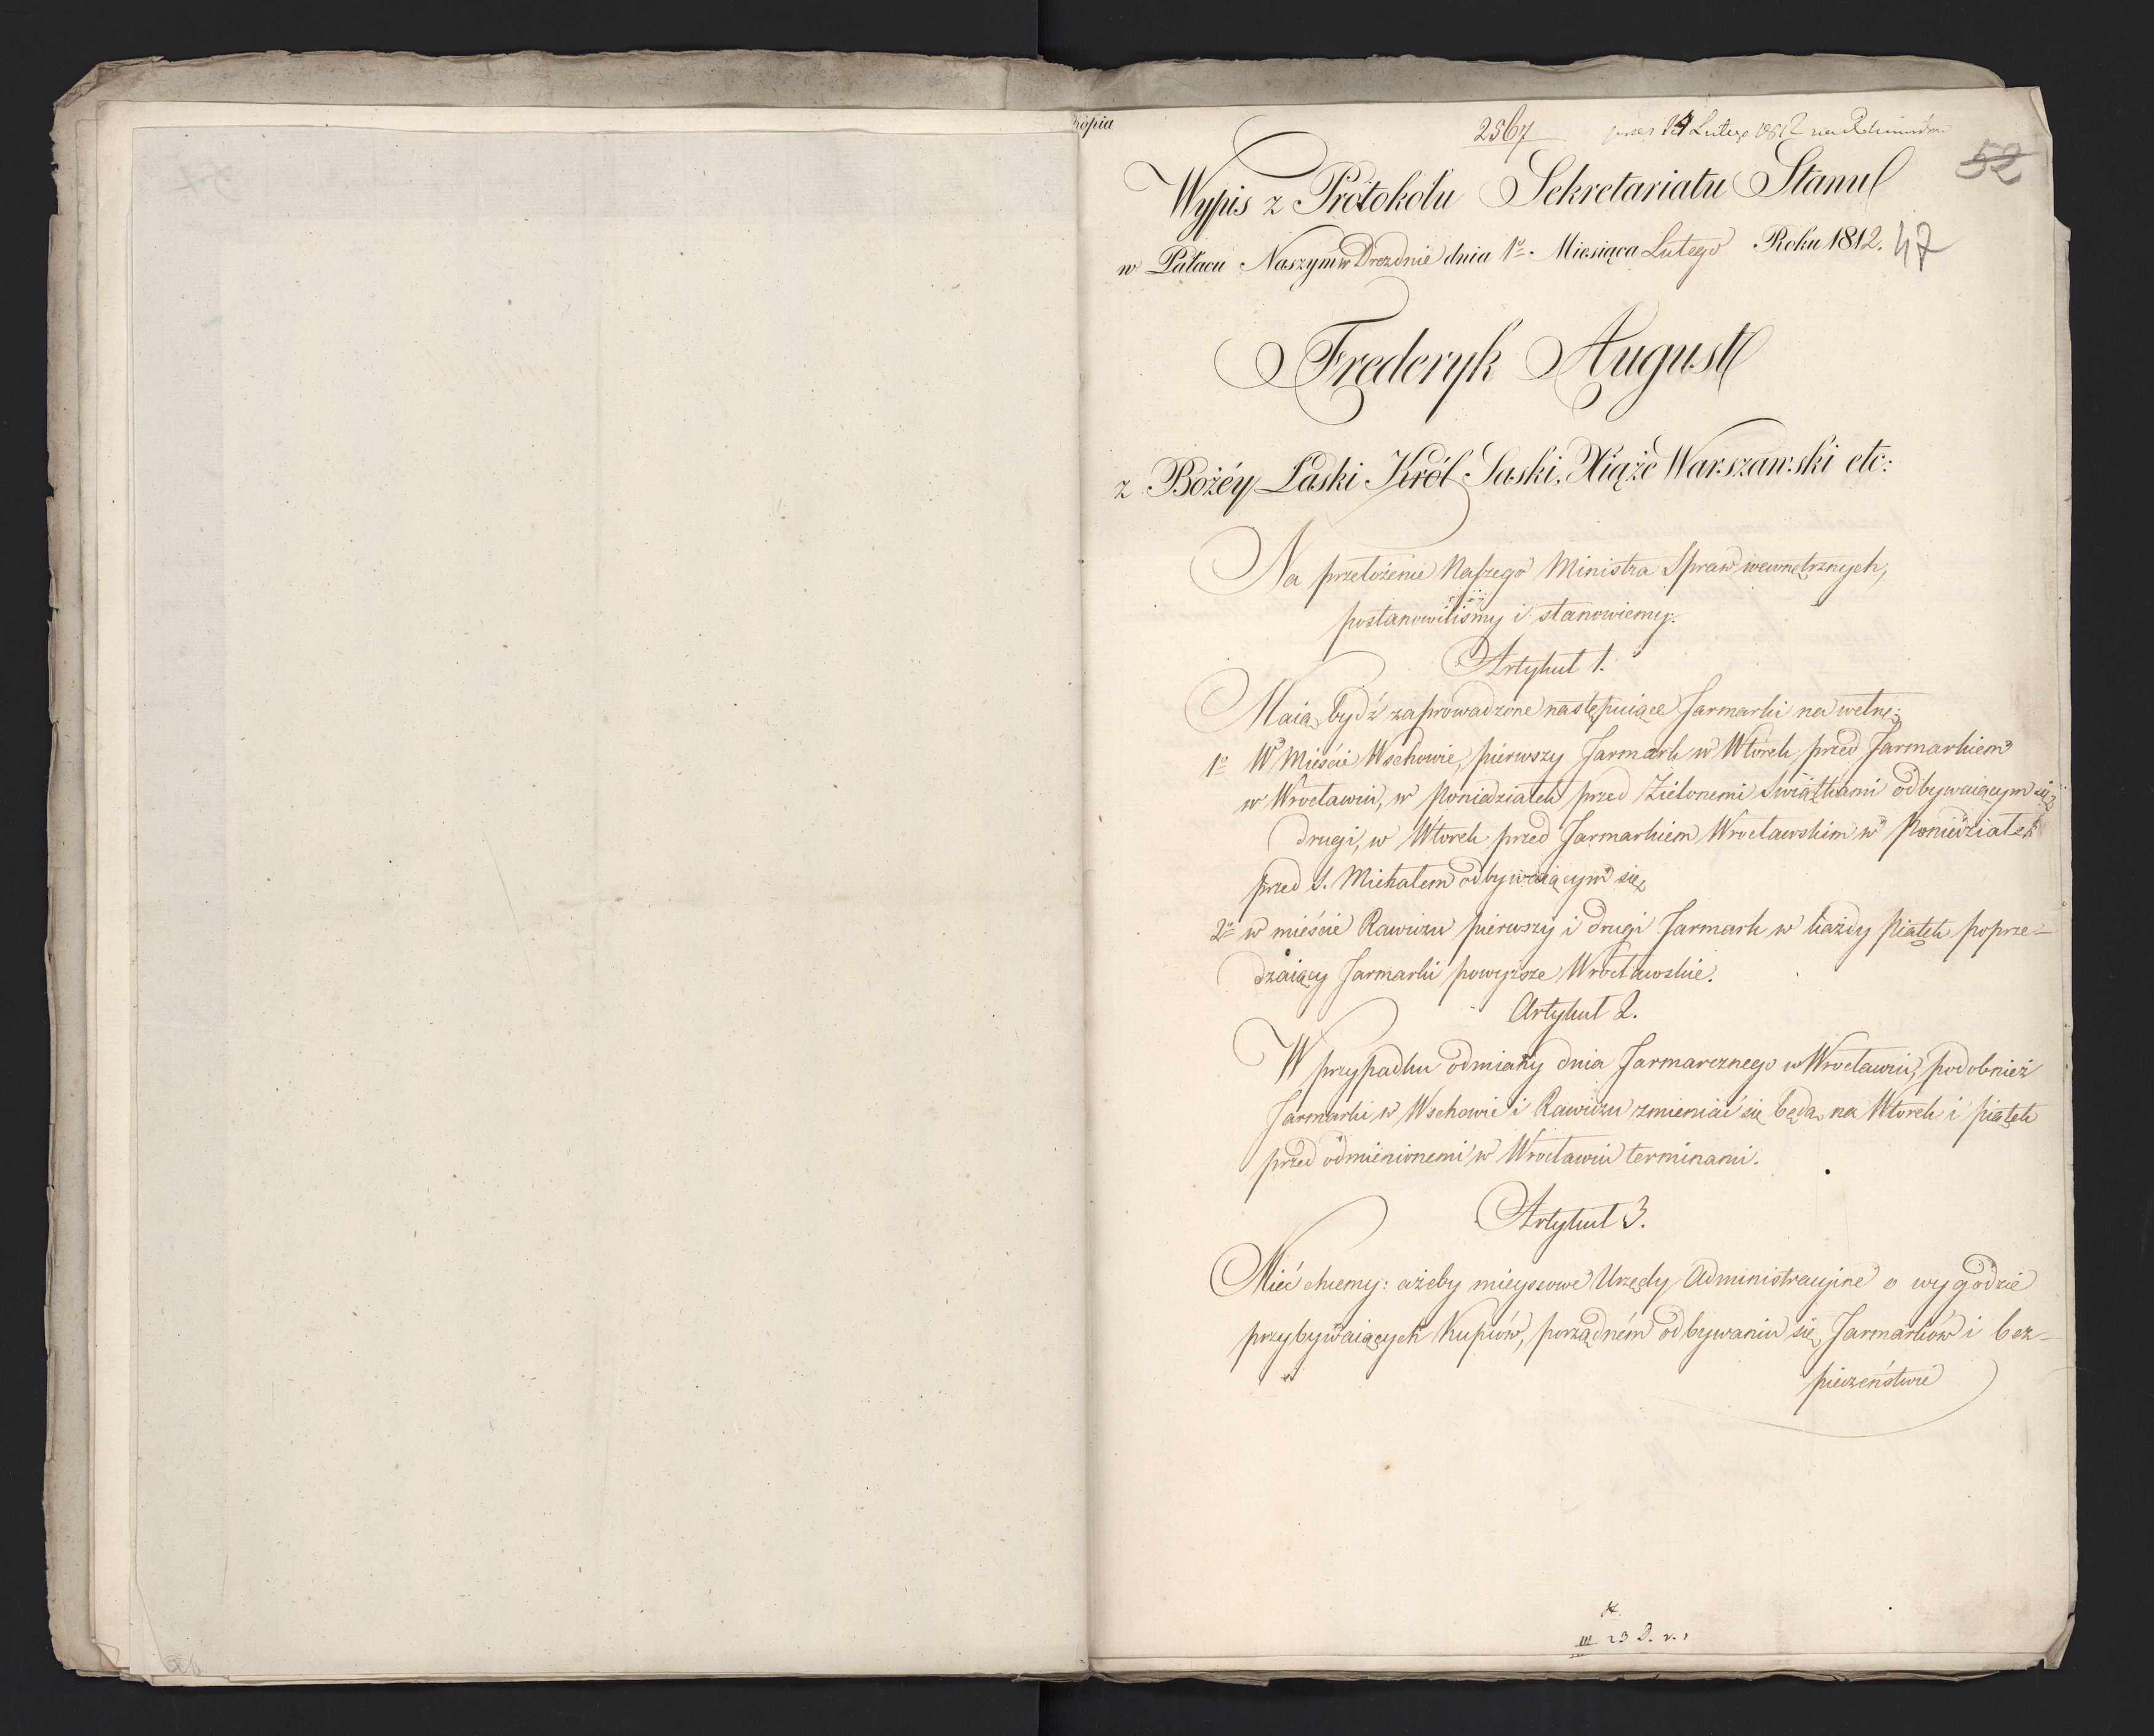 Kopia
2567
14 Lutego 1812
52
Wypis z Protokołu Sekretariatu Stanu
w Pałacu Naszym w Dreznie dnia 1º. Miesiąca Lutego Roku 1812.
47
Frederyk August
z Bożéy Łaski Król Saski, Xiąże Warszawski etc:
Na przełożenie Naszego Ministra Spraw wewnętrznych,
postanowiliśmy i stanowiemy:
Artykuł 1.
Maią bydź zaprowadzone następuiące Jarmarki na wełnę:
1º W Mieście Wschowie, pierwszy Jarmark w Wtorek przed Jarmarkiem
w Wrocławiu, w Poniedziałek przed Zielonemi Swiątkami odbywaiącym się
drugi, w Wtorek przed Jarmarkiem Wrocławskim w Poniedziałek
przed S. Michałem odbywaiącym się,
2º w mieście Rawiczu pierwszy i drugi Jarmark w każdy Piątek poprze=
dzaiący Jarmarki powyższe Wrocławskie.
Artykuł 2.
W przypadku odmiany dnia Jarmarcznego w Wrocławiu, podobnież
Jarmarki w Wschowie i Rawiczu zmieniać się będą na Wtorek i piątek
przed odmienionemi w Wrocławiu terminami.
Artykuł 3.
Mieć chcemy: ażeby mieyscowe Urzędy Administracyjne o wygodzie
przybywaiących Kupców, porządném odbywaniu się Jarmarków i bez=
pieczeństwie
III 23 D.